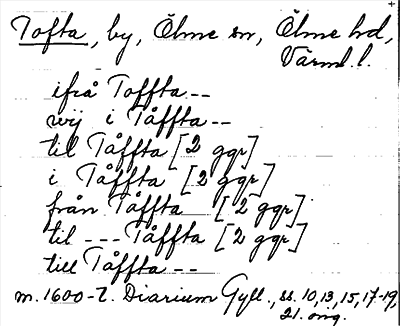 Tofta, by, Ölme sn, Ölme hd,
Värml. l.
ifrå Toffta --
wij i Tåffta --
til Tåffta [2 ggr]
i Tåffta [2 ggr]
från Tåffta [2 ggr]
til --- Tåffta [2 ggr]
till Tåffta --
m. 1600-t. Diarium Gyll., ss. 10, 13, 15, 17-19,
21. omg.